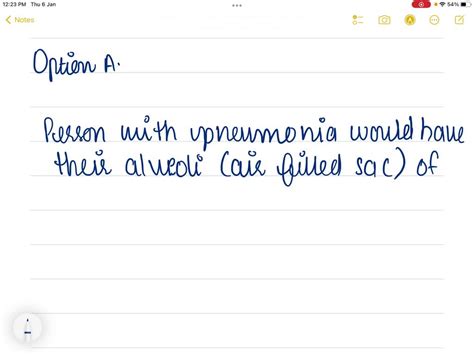 12:23 PM Thu 6 Jan
54%
Notes
Option A.
Person with pneumonia would have
their alveoli (air filled sac) of